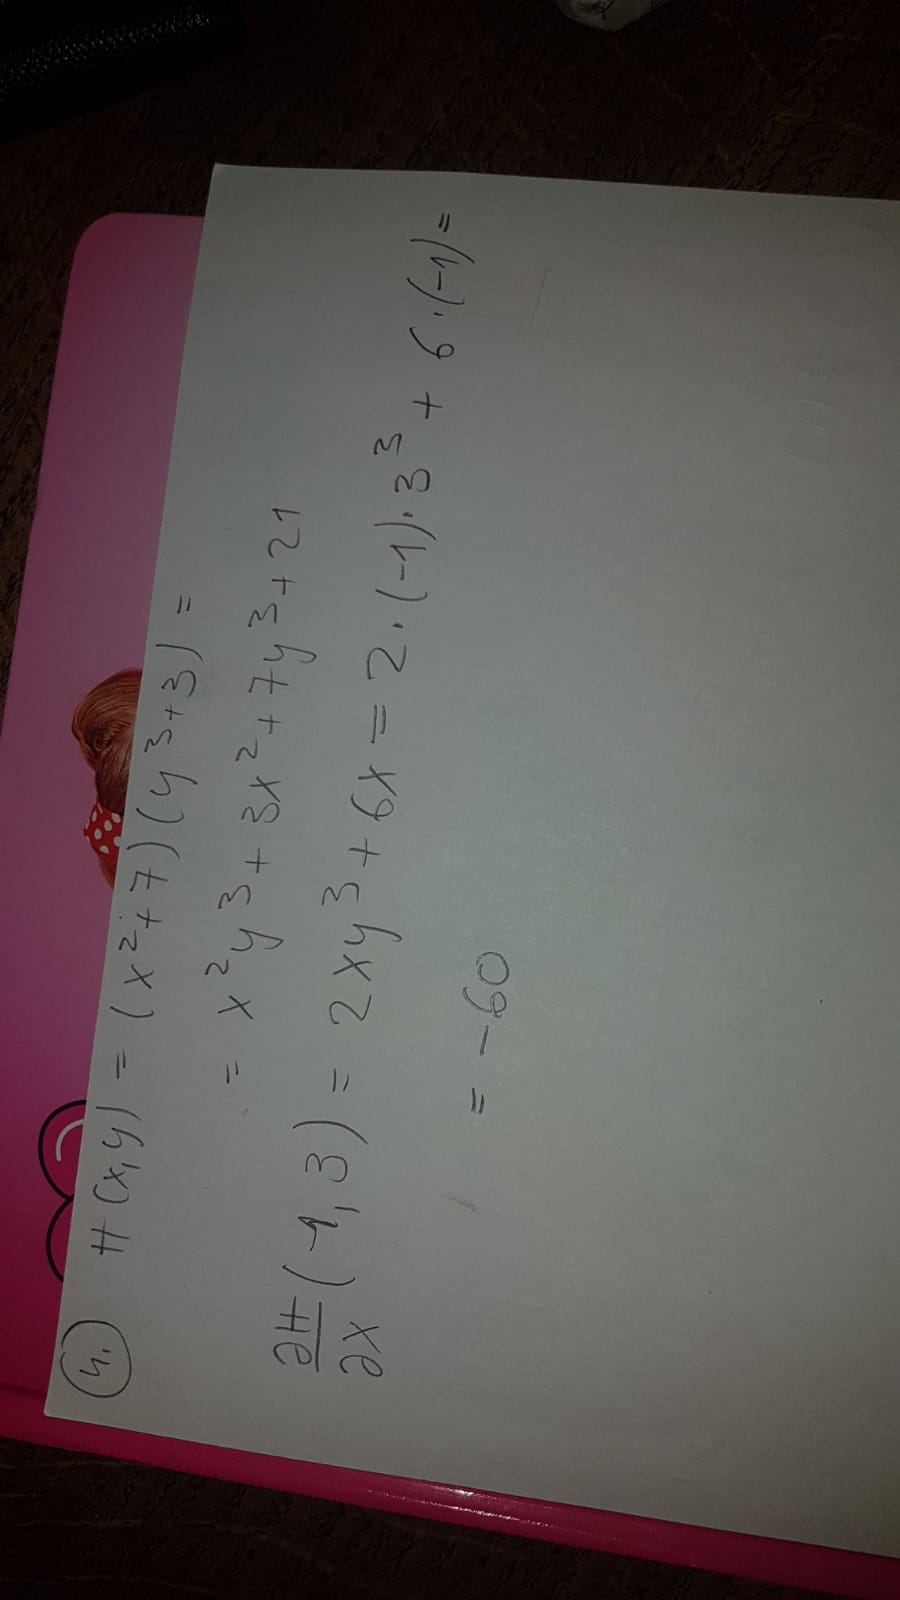 4. H(x,y) = (x²+7)(y³+3) =
= x²y³ + 3x² + 7y³ + 21
∂H/∂x (-1,3) = 2xy³ + 6x = 2·(-1)·3³ + 6·(-1) =
= -60